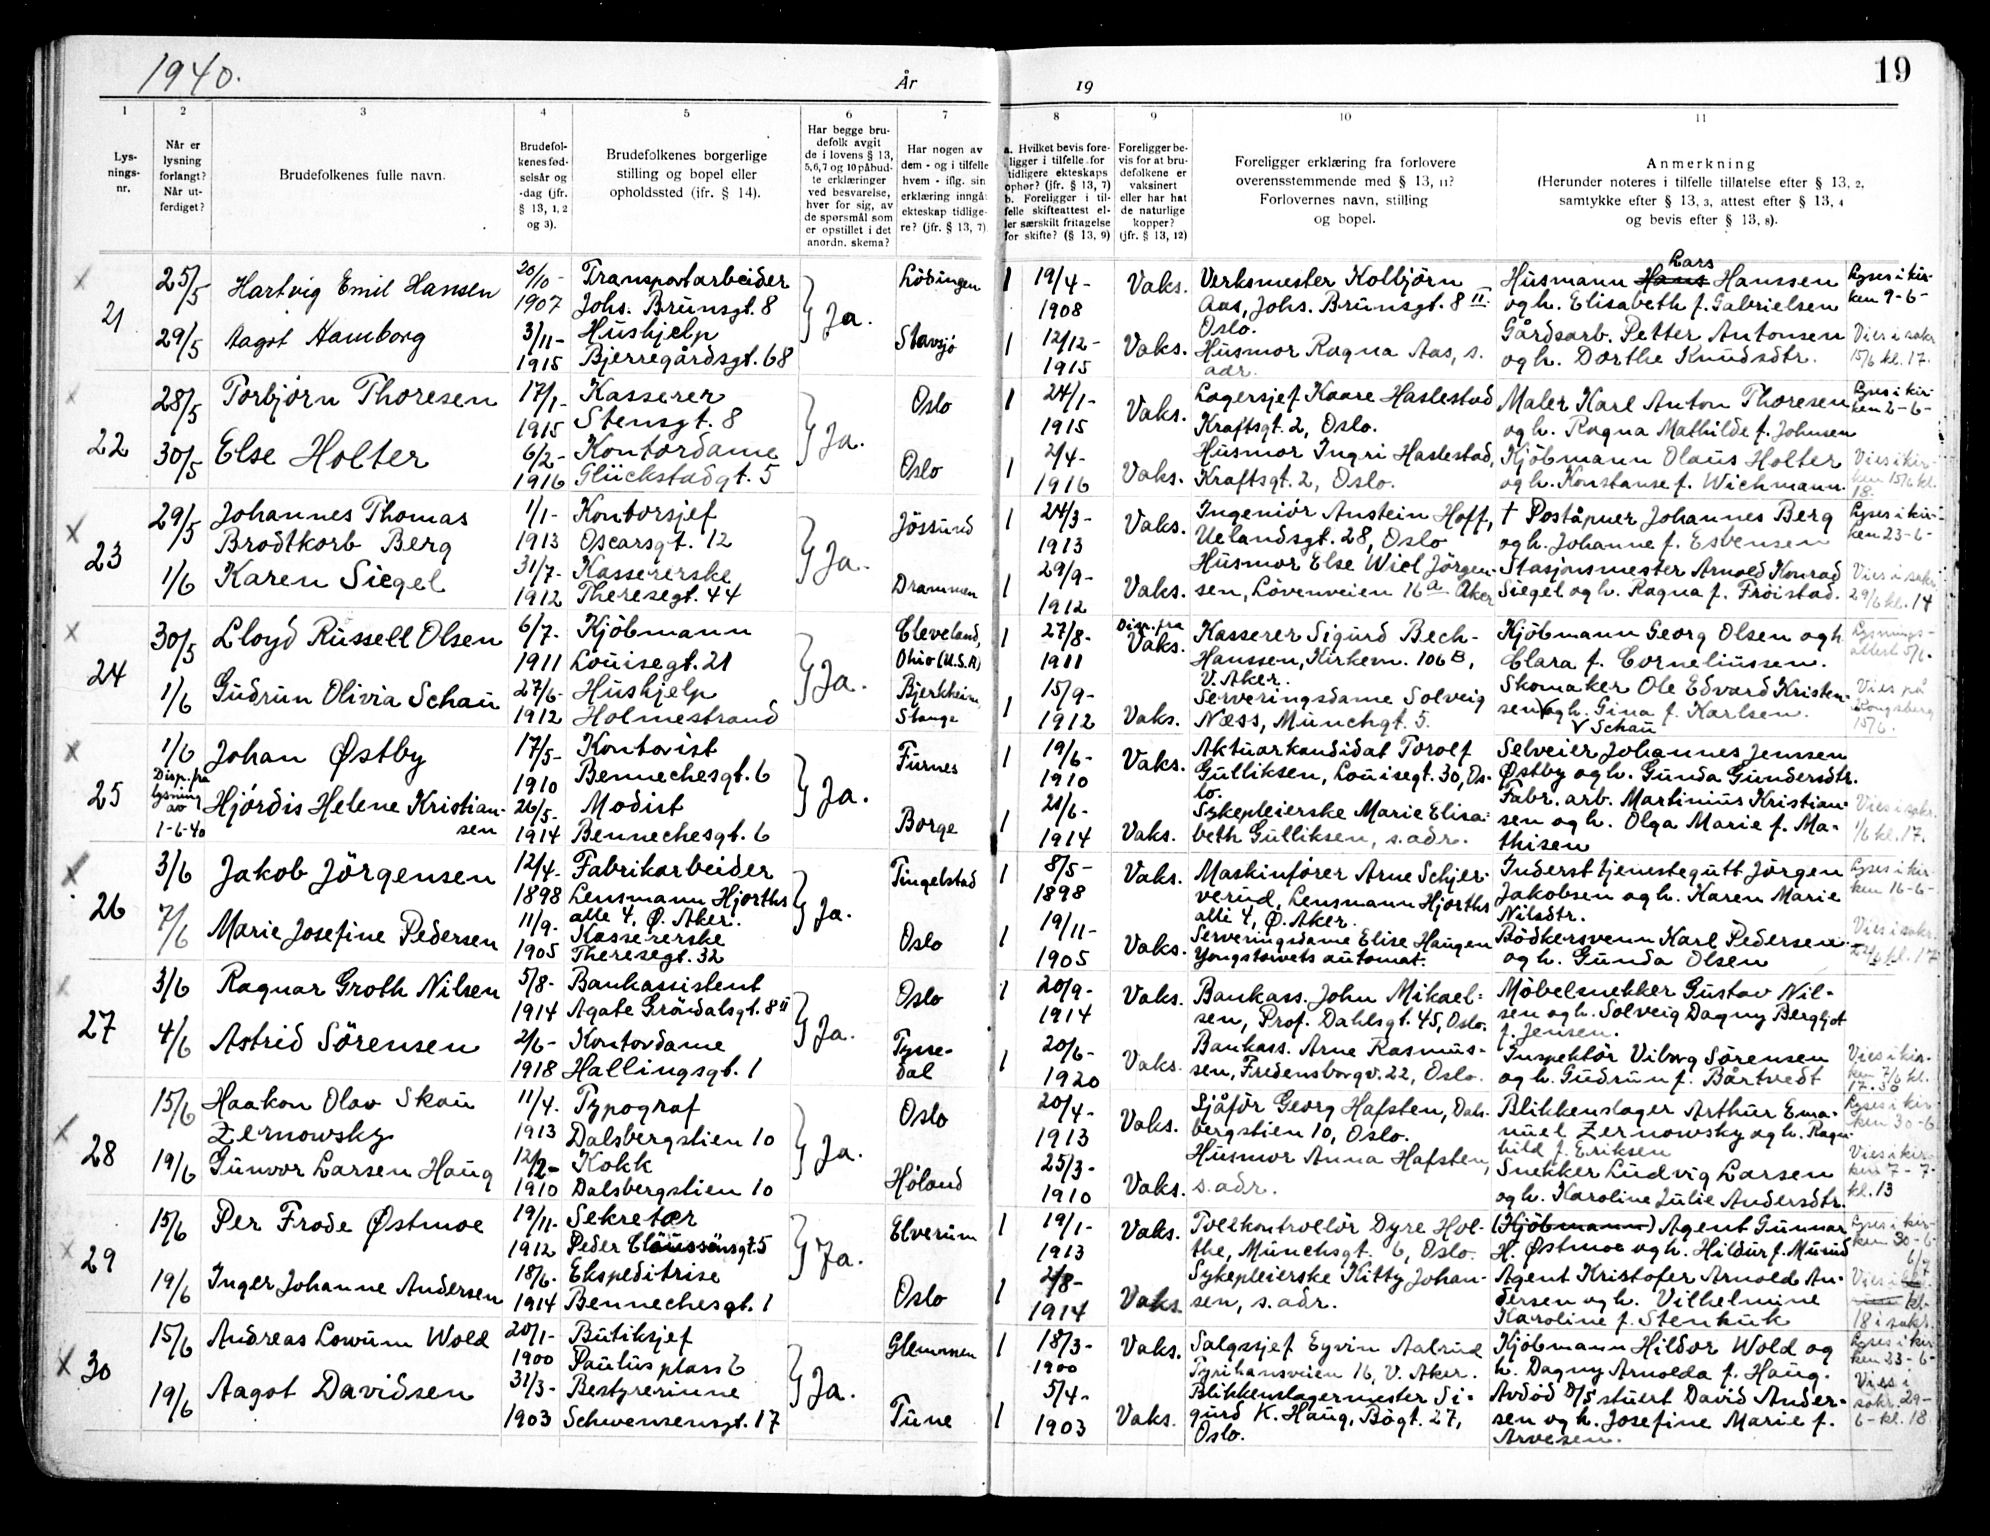 1940.
År
19
19
1
2
3
4
5
6
7
8
9
10
11
Lys-
nings-
nr.
Når er
lysning
forlangt?
Når ut-
ferdiget?
Brudefolkenes fulle navn.
Brudefol-
kenes fød-
selsår og
-dag (jfr.
§ 13, 1, 2
og 3).
Brudefolkenes borgerlige
stilling og bopel eller
opholdssted (ifr. § 14).
Har begge bru-
defolk avgit
de i lovens § 13,
5,6,7 og 10 påbud-
te erklæringer
ved besvarelse,
hver for sig, av
de spørsmål som
er opstillet i det
anordn. skema?
Har nogen av
dem - og i tilfelle
hvem - iflg. sin
erklæring inngå:
ekteskap tidlige-
re? (jfr. § 13, 7)
a. Hvilket bevis fore-
ligger i tilfelle for
tidligere ekteskaps
ophør? (jfr. § 13, 7)
b. Foreligger i til-
felle skifteattest el-
ler særskilt fritagelse
for skifte? (§ 13, 9)
Foreligger be-
vis for at bru-
defolkene er
vaksinert
eller har hat
de naturlige
kopper?
(jfr. § 13, 12)
Foreligger erklæring fra forlovere
overensstemmende med § 13, 11?
Forlovernes navn, stilling
og bopel.
Anmerkning
(Herunder noteres i tilfelle tillatelse efter § 13, 2,
samtykke efter § 13, 3, attest efter § 13, 4
og bevis efter § 13, 8).
21
25/5
29/5
Hartvig Emil Hansen
Aagot Hamborg
20/10-
1907
3/11-
1915
Transportarbeider
Johs. Brunsgt. 8
Hushjelp
Bjerregårdsgt. 68
Ja.
Lödingen
Stavsjö
1 19/4-
1908
1 12/12-
1915
Vaks.
Vaks.
Verksmester Kolbjörn
Aas, Johs. Brunsgt. 8 II.
Oslo.
Husmor Ragna Aas, s.
adr.
Lars
Husmann Hans Hanssen
og h. Elisabeth f. Gabrielsen
Gårdsarb. Petter Antonsen
og h. Dorthe Knudsdtr.
Lyses i kir-
ken 9-6-
Vies i sakr.
15/6 kl. 17.
22
28/5
30/5
Torbjörn Thoresen
Else Holter
17/1-
1915
6/2-
1916
Kasserer
Stensgt. 8
Kontordame
Glückstadgt. 5
Ja.
Oslo
Oslo
1 24/1-
1915
1 2/4-
1916
Vaks.
Vaks.
Lagersjef Kaare Haslestad
Kraftsgt. 2, Oslo.
Husmor Ingri Haslestad,
Kraftsgt. 2, Oslo.
Maler Karl Anton Thoresen
og h. Ragna Mathilde f. Johnsen
Kjöbmann Olaus Holter
og h. Konstanse f. Wichmann.
Lyses i kir-
ken 2-6-
Vies i kir-
ken 15/6 kl.
18.
23
29/5
1/6
Johannes Thomas
Brodtkorb Berg
Karen Siegel
1/1-
1913
31/7-
1912
Kontorsjef
Oscarsgt. 12
Kassererske
Theresegt. 44
Ja.
Jössund
Drammen
1 24/3-
1913
1 29/9-
1912
Vaks.
Vaks.
Ingeniör Anstein Hoff,
Uelandsgt. 28, Oslo
Husmor Else Wiel Jörgen-
sen, Lövenveien 16 a Aker
† Poståpner Johannes Berg
og h. Johanne f. Esbensen
Stasjonsmester Arnold Konrad
Siegel og h. Ragna f. Fröistad.
Lyses i kir-
ken 23-6-
Vies i sakr.
29/6 kl. 14
24
30/5
1/6
Lloyd Russell Olsen
Gudrun Olivia Schau
6/7-
1911
27/6-
1912
Kjöbmann
Louisegt. 21
Hushjelp
Holmestrand
Ja.
Cleveland,
Ohio (U.S.A)
Bjerkheim,
Stange
1 27/8-
1911
1 15/9-
1912
Disp. fra
Vaks.
Vaks.
Kasserer Sigurd Bech-
Hanssen, Kirkem. 106 B,
V. Aker.
Serveringsdame Solveig
Næss, Munchgt. 5.
Kjöbmann Georg Olsen og h
Clara f. Corneliussen.
Skomaker Ole Edvard Kristen-
sen og h. Gina f. Karlsen.
V Schau
Lysnings-
attest 5/6-
Vies på
Kongsberg
15/6.
25
1/6
Disp. fra
lysning
av
1-6-40
Johan Østby
Hjördis Helene Kristian-
sen
17/5-
1910
26/5-
1914
Kontorist
Bennechesgt. 6
Modist
Bennechesgt. 6
Ja.
Furnes
Borge
1 19/6-
1910
1 21/6-
1914
Vaks.
Vaks.
Aktuarkandidat Torolf
Gulliksen, Louisegt. 30, Os-
lo.
Sykepleierske Marie Elisa-
beth Gulliksen, s. adr.
Selveier Johannes Jenssen
Østby og h. Gunda Gundersdtr.
Fabr. arb. Martinius Kristian-
sen og h. Olga Marie f. Ma-
thisen
Vies i sakr.
1/6 kl. 17.
26
3/6
7/6
Jakob Jörgensen
Marie Josefine Pedersen
12/4-
1898
11/9-
1905
Fabrikarbeider
Lensmann Hjorths
alle 4, Ø. Aker.
Kassererske
Theresegt. 32
Ja.
Tingelstad
Oslo
1 8/5-
1898
1 19/11-
1905
Vaks.
Vaks.
Maskinförer Arne Schjer-
verud, Lensmann Hjorths
alle 4, Ø. Aker.
Serveringsdame Elise Haugen
Yongstorvets automat.
Inderst tjenestegutt Jörgen
Jakobsen og h. Karen Marie
Nilsdtr.
Bödkersvenn Karl Pedersen
og h. Gunda Olsen
Lyses i kir-
ken 16-6-
Vies i sakr.
22/6 kl. 17
27
3/6
4/6
Ragnar Groth Nilsen
Astrid Sörensen
5/8-
1914
2/6-
1918
Bankassistent
Agate Gröndalsgt. 8 II
Kontordame
Hallingsgt. 1
Ja.
Oslo
Tysse-
dal
1 20/9-
1914
1 20/6-
1920
Vaks.
Vaks.
Bankass. John Mikael-
sen, Prof. Dahlsgt. 45, Oslo.
Bankass. Arne Rasmus-
sen, Fredensborgv. 22, Oslo.
Möbelsnekker Gustav Nil-
sen og h. Solveig Dagny Bergljot
f. Jensen.
Inspektör Viborg Sörensen
og h. Gudrun f. Bårtvedt
Vies i kir-
ken 7/6 kl.
17.30
28
15/6
19/6
Haakon Olav Skau
Zernowsky
Gunvor Larsen Haug
11/4-
1913
12/2-
1910
Typograf
Dalsbergstien 10
Kokk
Dalsbergstien 10
Ja.
Oslo
Höland
20/4-
1913
25/3-
1910
Vaks.
Vaks.
Sjåför Georg Hafsten, Dals-
bergstien 10, Oslo.
Husmor Anna Hafsten,
s. adr.
Blikkenslager Arthur Ema-
nuel Zernowsky og h. Ragn-
hild f. Eriksen
Snekker Ludvig Larsen
og h. Karoline Julie Andersdtr.
Lyses i kir-
ken 30-6
Vies i kir-
ken 7-7-
kl. 13
29
15/6
19/6
Per Frode Østmoe
Inger Johanne Andersen
19/11-
1912
18/6-
1914
Sekretær
Peder Claussönsgt. 5
Ekspeditrise
Bennechesgt. 1
Ja.
Elverum
Oslo
1 19/1-
1913
1 2/8-
1914
Vaks.
Vaks
Tvetkontrollör Dyre Hol-
the, Munchsgt. 6, Oslo.
Sykepleierske Kitty Johan-
sen, s. adr.
(Kjöbmann) Agent Gunnar
H. Østmoe og h. Hildur f. Musud
Agent Kristofer Arnold An-
dersen og h. Vilhelmine
Karoline f. Stenkuk
Lyses i kir-
ken 30-6-
6/7
Vies i
kl.
18 i sakr.
30
15/6
19/6
Andreas Lowum Wold
Aagot Davidsen
20/1-
1900
31/3-
1903
Butiksjef
Paulus plass 6
Bestyrerinne
Schwensensgt. 17
Ja.
Glemmen
Tune
1 18/3-
1900
1 5/4-
1903
Vaks.
Vaks.
Salgssjef Eyvin Aalrud
Tyrihansveien 16, V. Aker.
Blikkenslagermester Si-
gurd K. Haug, Bögt. 27,
Oslo.
Kjöbmann Hildor Wold og
h. Dagny Arnolda f. Haug.
Avdöd D/S stuert David Ander-
sen og h. Josefine Marie f.
Arvesen.
Lyses i kir-
ken 23-6-
Vies i
sakr. 29-
6- kl. 18